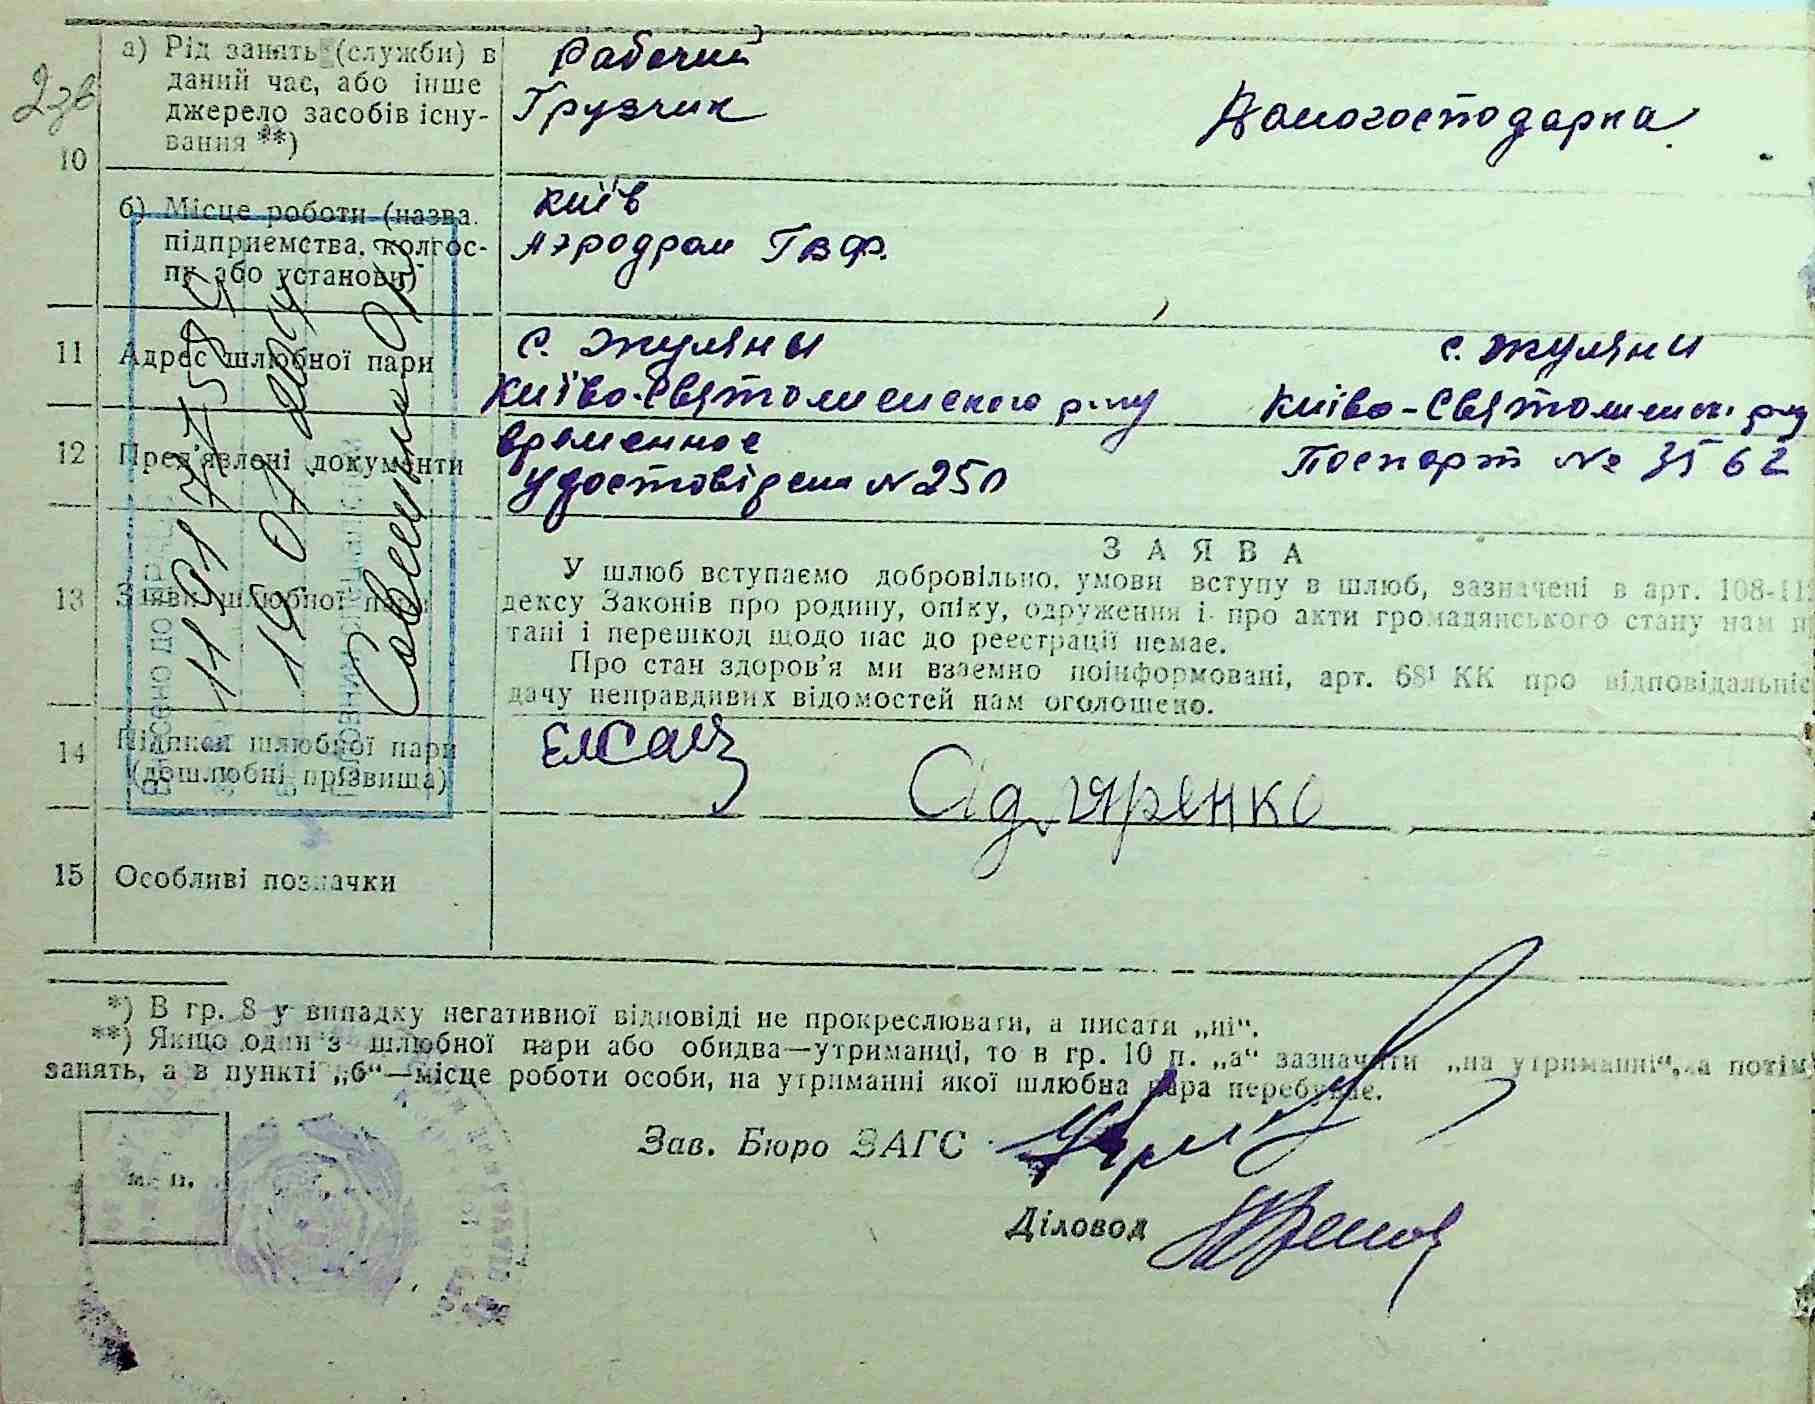 2зв
10
а) Рід занять (служби) в
даний час, або інше
джерело засобів існу-
вання **)
Рабочий
Грузчик
Домогосподарка
б) Місце роботи (назва
підприємства, колгос-
пу або установи)
Київ
Аэродром ГВФ.
11
Адрес шлюбної пари
с. Жуляны
Київо-Святошинского р-ну
с. Жуляни
Київо-Святошинск. р-ну
12
Пред'явлені документи
временное
удостовірения №250
Поспорт № 3562
13
Заяви шлюбної пари
ЗАЯВА
У шлюб вступаємо добровільно, умови вступу в шлюб, зазначені в арт. 108-11
дексу Законів про родину, опіку, одруження і про акти громадянського стану нам
тані і перешкод щодо нас до реєстрації немає.
Про стан здоров'я ми взаємно поінформовані, арт. 68¹ КК про відповідальніс
дачу неправдивих відомостей нам оголошено.
14
Підписи шлюбної пари
(дошлюбні прізвища)
15
Особливі позначки
*) В гр. 8 у випадку негативної відповіді не прокреслювати, а писати „ні“.
**) Якщо один з шлюбної пари або обидва—утриманці, то в гр. 10 п. „а“ зазначити „на утриманні“, а потім
занять, а в пункті „б“—місце роботи особи, на утриманні якої шлюбна пара перебуває.
м. п.
Зав. Бюро ЗАГС
Діловод